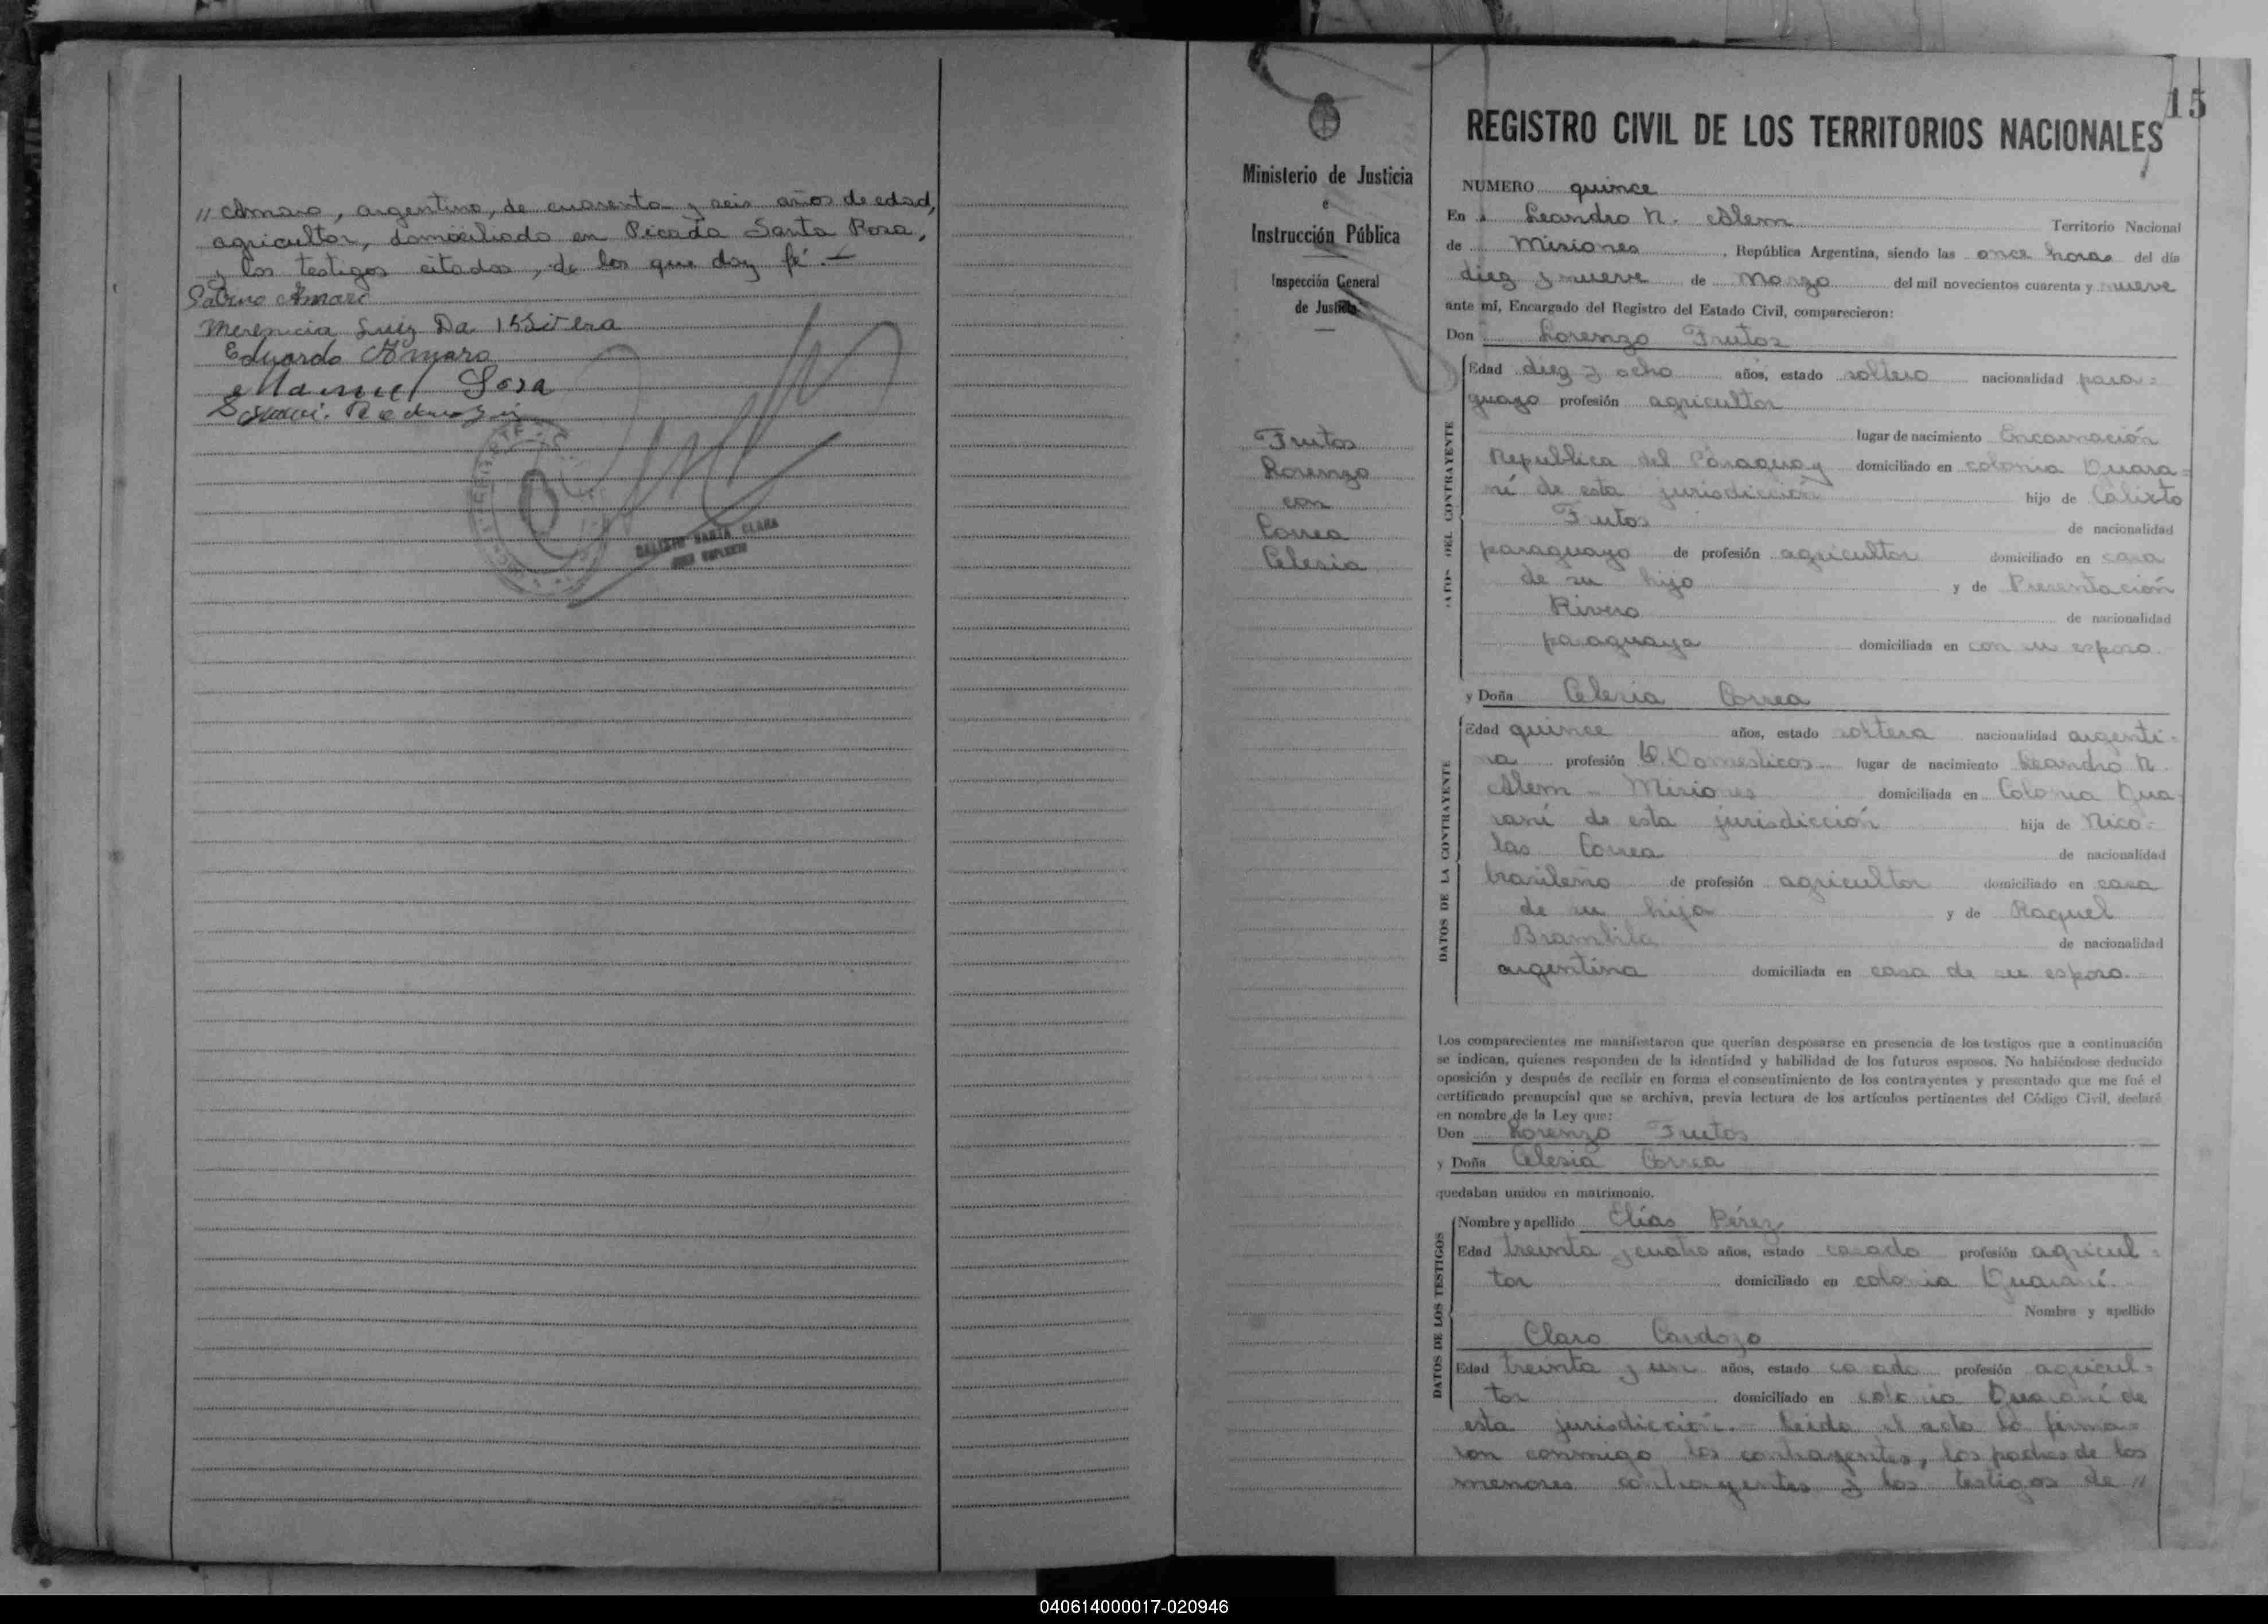 " Amaro, argentino, de cuarenta y seis años de edad,
agricultor, domiciliado en Picada Santa Rosa,
y los testigos citados, de los que doy fé.—
Sabino Amaro
Merencia Luiz Da
Eduardo Amaro
Manuel Sosa
CALISTO SANTA CLARA
JUEZ SUPLENTE
Ministerio de Justicia
e
Instrucción Pública
Inspección General
de Justicia
Frutos
Lorenzo
con
Correa
Celesia
15
REGISTRO CIVIL DE LOS TERRITORIOS NACIONALES
NUMERO quince
En Leandro N. Alem Territorio Nacional
de Misiones, República Argentina, siendo las once horas del día
diez y nueve de Marzo del mil novecientos cuarenta y nueve
ante mí, Encargado del Registro del Estado Civil, comparecieron:
Don Lorenzo Frutos
DATOS DEL CONTRAYENTE
Edad diez y ocho años, estado soltero nacionalidad para=
guayo profesión agricultor
lugar de nacimiento Encarnación
Republica del Paraguay domiciliado en colonia Guara=
ní de esta jurisdicción hijo de Calixto
Frutos de nacionalidad
paraguayo de profesión agricultor domiciliado en casa
de su hijo y de Presentación
Rivero de nacionalidad
paraguaya domiciliada en con su esposo.
y Doña Celesia Correa
DATOS DE LA CONTRAYENTE
Edad quince años, estado soltera nacionalidad argenti=
na profesión Q. Domesticos lugar de nacimiento Leandro N.
Alem - Misiones domiciliada en Colonia Gua=
raní de esta jurisdicción hija de Nico=
las Correa de nacionalidad
brasileño de profesión agricultor domiciliado en casa
de su hija y de Raquel
Brambila de nacionalidad
argentina domiciliada en casa de su esposo.
Los comparecientes me manifestaron que querían desposarse en presencia de los testigos que a continuación
se indican, quienes responden de la identidad y habilidad de los futuros esposos. No habiéndose deducido
oposición y después de recibir en forma el consentimiento de los contrayentes y presentado que me fué el
certificado prenupcial que se archiva, previa lectura de los artículos pertinentes del Código Civil, declaré
en nombre de la Ley que:
Don Lorenzo Frutos
y Doña Celesia Correa
quedaban unidos en matrimonio.
DATOS DE LOS TESTIGOS
Nombre y apellido Elías Pérez
Edad treinta y cuatro años, estado casado profesión agricul=
tor domiciliado en colonia Guaraní.
Nombre y apellido
Claro Cardozo
Edad treinta y un años, estado casado profesión agricul=
tor domiciliado en colonia Guaraní de
esta jurisdicción. Leida el acta la firma=
ron conmigo los contrayentes, los padres de los
menores contrayentes y los testigos de "
040614000017-020946